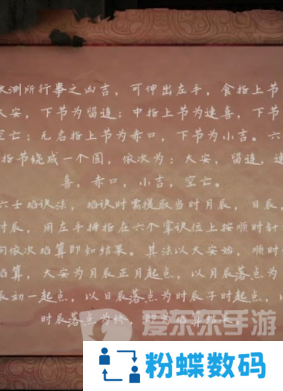 测所行事之凶吉，可伸出左手，食指上节
大安，下节为留连；中指上节为速喜，下节
空亡；无名指上节为赤口，下节为小吉。六
指节绕成一个圆，依次为：大安，留连，速
喜，赤口，小吉，空亡。
六壬掐诀法，掐诀时需提取当时月辰，日辰，
时辰，用左手拇指在六个掌诀位上按顺时针
向依次掐算即知结果。其法以大安始，顺时
掐算，大安为月辰正月起点，以月辰落点为
辰初一起点，以日辰落点为时辰子时起点，
时辰落点为终
爱乐乐手游
粉蝶数码